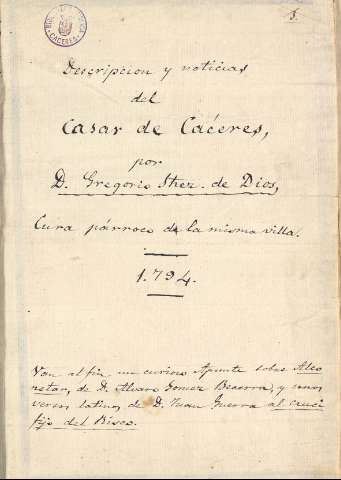 BIBLIOTECA PUBLICA
CACERES
Descripcion y noticias
del
Casar de Cáceres,
por
D. Gregorio Shez. de Dios,
Cura párroco de la misma villa.
1.794.
Van al fin un curioso Apunte sobre Alco
netar, de D. Alvaro Gomez Becerra, y unos
versos latinos de D. Juan Guerra al cruci
fijo del Risco.